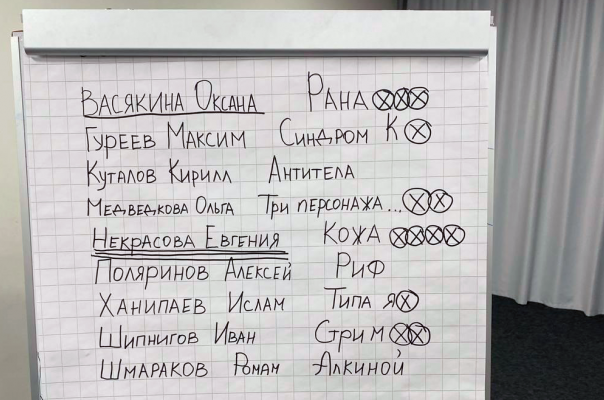 Васякина Оксана Рана ⊗⊗⊗
Гуреев Максим Синдром К ⊗
Куталов Кирилл Антитела
Медведкова Ольга Три персонажа... ⊗⊗
Некрасова Евгения Кожа ⊗⊗⊗⊗
Поляринов Алексей Риф
Ханипаев Ислам Типа я ⊗
Шипнигов Иван Стрим ⊗⊗
Шмараков Роман Алкиной